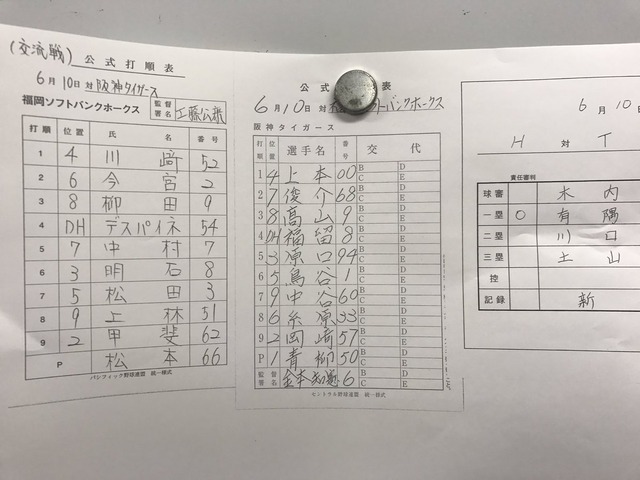 (交流戦) 公式打順表
6月10日 対 阪神タイガース
福岡ソフトバンクホークス 監督署名 工藤公康
打順 位置 氏名 番号
1 4 川﨑 52
2 6 今宮 2
3 8 柳田 9
4 DH デスパイネ 54
5 7 中村 7
6 3 明石 8
7 5 松田 3
8 9 上林 51
9 2 甲斐 62
P 松本 66
パシフィック野球連盟 統一様式
公式 表
6月10日 対 フトバンクホークス
阪神タイガース
打順 位置 選手名 番号 交代
1 4 上本 00 B C D E
2 7 俊介 68 B C D E
3 8 高山 9 B C D E
4 DH 福留 8 B C D E
5 3 原口 94 B C D E
6 5 鳥谷 1 B C D E
7 9 中谷 60 B C D E
8 6 糸原 33 B C D E
9 2 岡﨑 57 B C D E
P 1 青柳 50 B C D E
監督署名 金本知憲 6 B C D E
セントラル野球連盟 統一様式
6月10
H 対 T
責任審判
球審 木内
一塁 〇 有隅
二塁 川口
三塁 土山
控
記録 新